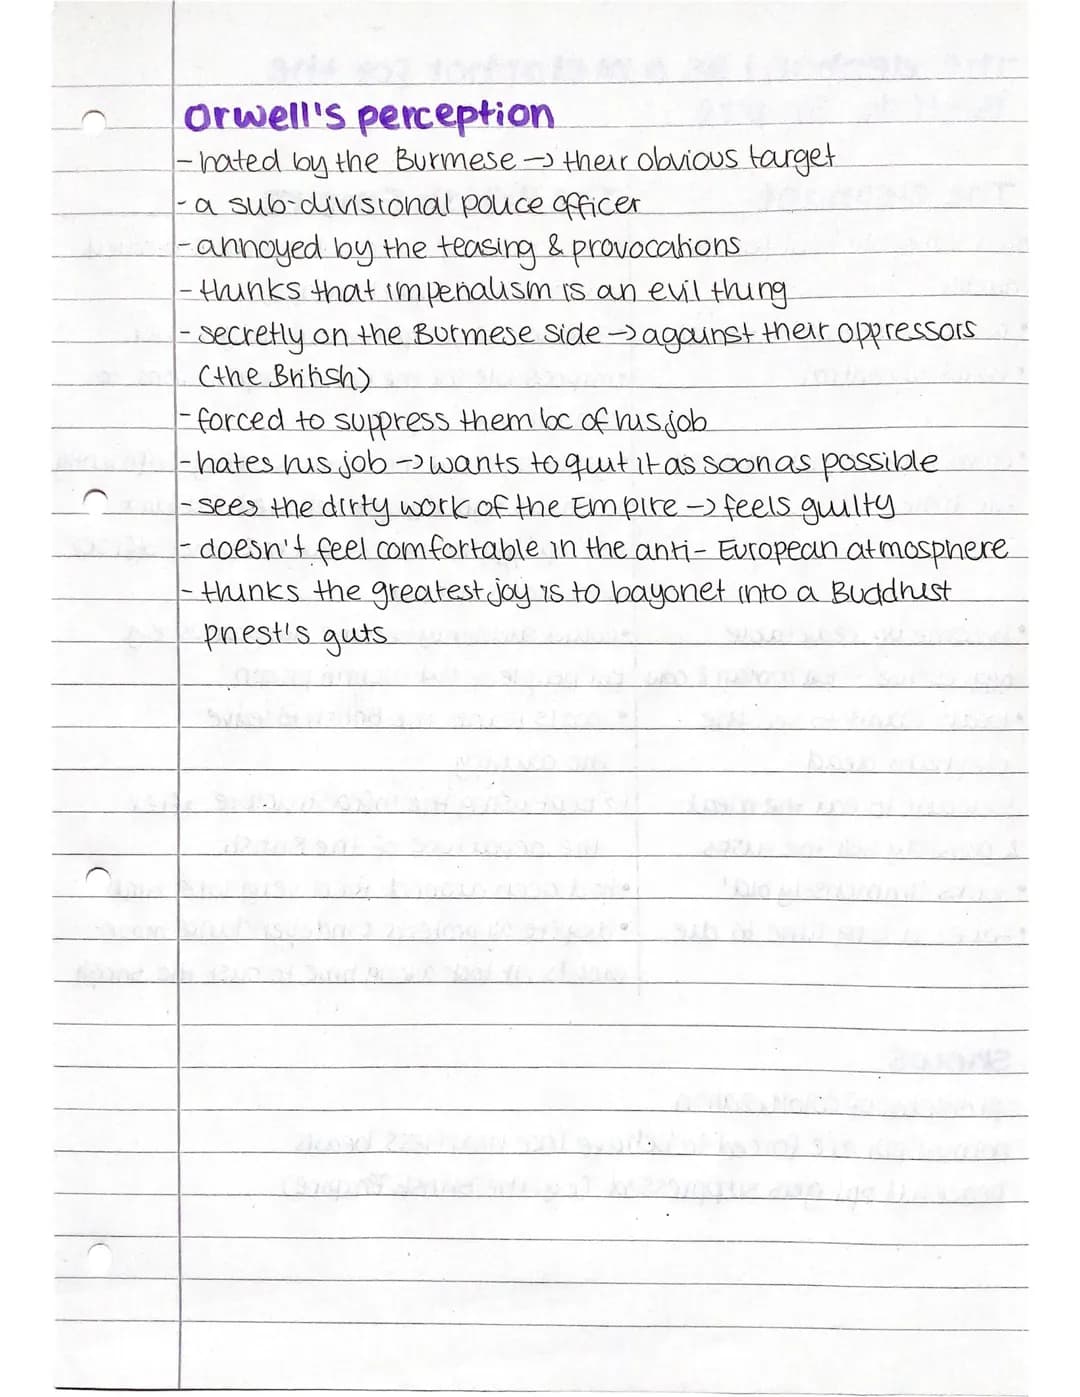 Orwell's perception
- hated by the Burmese -> their obvious target
- a sub-divisional police officer
- annoyed by the teasing & provocations
- thinks that imperialism is an evil thing
- secretly on the Burmese side -> against their oppressors
(the British)
- forced to suppress them bc of his job
- hates his job -> wants to quit it as soon as possible
- sees the dirty work of the Empire -> feels guilty
- doesn't feel comfortable in the anti- European atmosphere
- thinks the greatest joy is to bayonet into a Buddhist
priest's guts